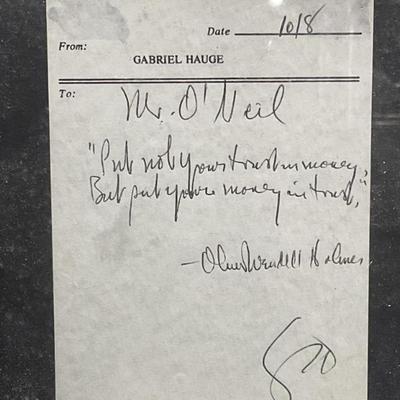 Date 10/8
From:
GABRIEL HAUGE
To:
Mr. O'Neil
"Put not your trust in money,
But put your money in trust,"
- Oliver Wendell Holmes